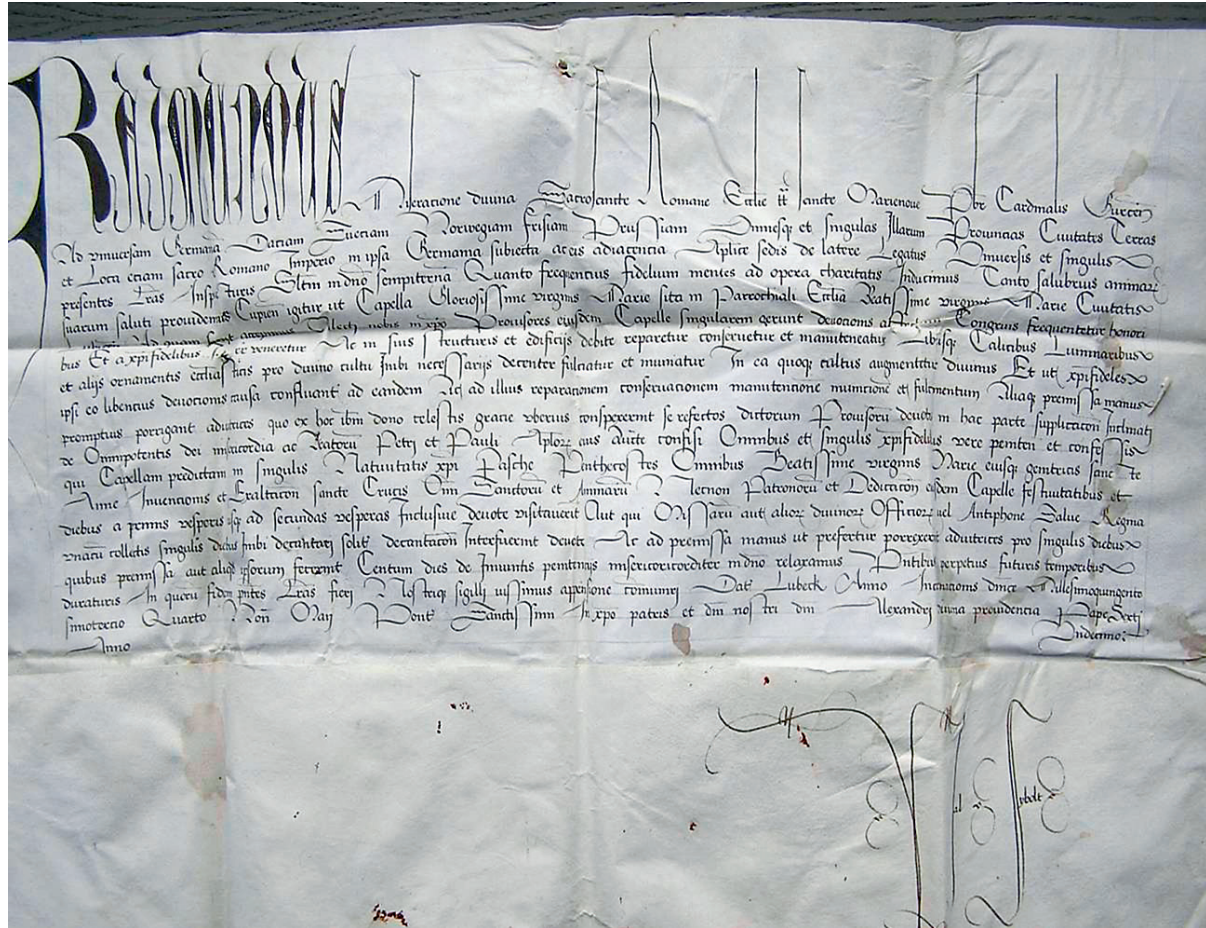 Raimundus Miseratione divina Sacrosancte Romane Ecclie tt sancte Marienove Pbr Cardinalis Gurcen
Ad vniuersam Germaniam Daciam Sueciam Norwegiam frisiam Prussiam Omnesq et singulas Illarum Prouincias Ciuitates Terras
et Loca etiam sacro Romano Imperio in ipsa Germania subiecta ac eis adiacentia Aplice sedis de latere Legatus Vniuersis et singulis
presentes Lras Inspecturis Sltm in dno sempiternã Quanto frequentius fidelium mentes ad opera charitatis Inducimus Tanto salubrius animarz
suarum saluti prouidemus Cupien igitur ut Capella Gloriosissime virginis Marie sita in Parrochiali Ecclia Beatissime virginis Marie Ciuitatis
Dilecti nobis in xpo Prouisores eiusdem Capelle singularem gerunt deuotionis Congruis frequentetur honori
bus Et a xpifidelibus veneretur Ac in suis structuris et edificijs debite reparetur conseruetur et manuteneatur Librisq Calicibus Luminaribus
et alijs ornamentis eccliasticis pro diuino cultu Inibi necessarijs decenter fulciatur et muniatur In ea quoq cultus augmentetur diuinus Et ut xpifideles
ipsi eo libentius deuotionis causa confluant ad eandem Ac ad illius reparationem conseruacionem manutencione municione et fulcimentum Aliaq premissa manus
promptius porrigant adiutrices quo ex hoc ibm dono celestis gracie vberius conspexerint se refectos dictorum Prouisorũ deuotis in hac parte supplicacion Inclinati
de Omnipotentis dei misericordia ac Beatorũ Petri et Pauli Aplorz eius aucte confisi Omnibus et singulis xpifidelibus vere peniten et confessis
qui Capellam predictam in singulis Natiuitatis xpi Pasche Penthecostes Omnibus Beatissime virginis Marie eiusq genitricis sancte
Anne Inuencionis et Exaltacion sancte Crucis Oim Sanctorũ et Animarũ Necnon Patronorũ et Dedicacion eisdem Capelle festiuitatibus et
diebus a primis vesperis vsq ad secundas vesperas Inclusiue deuote visitauerit Aut qui Missarũ aut aliorz diuinorz Officiorz vel Antiphone Salue Regina
vnacũ collectis singulis diebus Inibi decantari solit decantacion Interfuerint deuote Ac ad premissa manus ut prefertur porrexerit adiutrices pro singulis diebus
quibus premissa aut aliqd ipsorum fecerint Centum dies de Iniunctis penitencijs misericorditer in dno relaxamus Pntibus perpetuis futuris temporibus
duraturis In quorũ fidem pntes Lras fieri Nostriq sigilli iussimus appensione comuniri Dat Lubeck Anno Incarnationis dnice Millesimoquingente
simotercio Quarto Non Maij Pont Sanctissimi In xpo patris et dni nostri dni Alexandri diuina prouidencia Pape Sexti
Anno Vndecimo